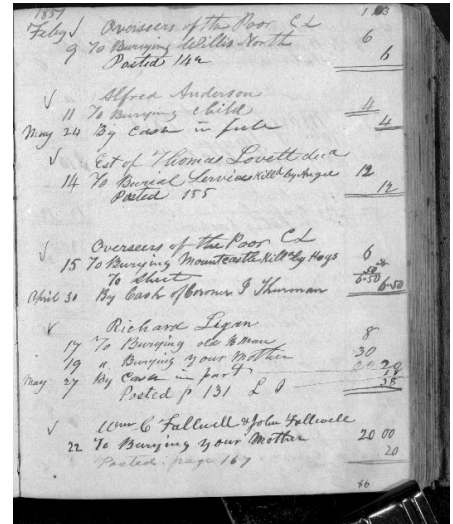 1857 103
Feby √ Overseers of the Poor C L
9 To Burying Willis North 6
Posted 142 6
√ Alfred Anderson
11 To Burying Child 4
May 24 By Cash in full 4
√ Est of Thomas Lovett decd
14 To Burial Services Killd by 12
Posted 155 12
√ Overseers of the Poor C L
15 To Burying Mountcastle Killd by Hogs 6
To Sheet 50
6-50 6-50
April 30 By Cash of Coroner J Thurman
√ Richard Ligan
17 To Burying old Man 8
19 " Burying your Mother 30
May 27 By Cash in part
Posted p 131 38
√ Wm C Fallwell & John Fallwell
22 To Burying your Mother 20 00
Posted page 167 20
86